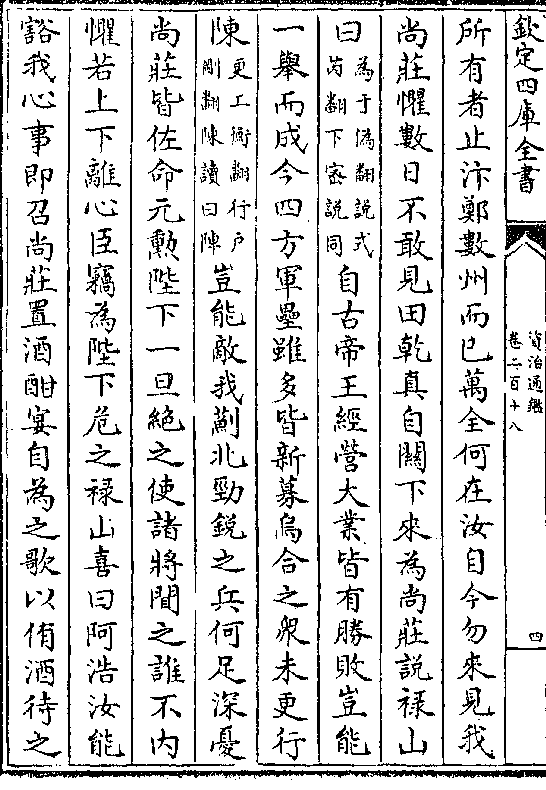 欽定四庫全書
資治通鑑
卷二百十八
四
所有者止汴鄭數州而已萬全何在汝自今勿來見我
尚莊懼數日不敢見田乾真自關下來為尚莊説禄山
曰為于偽翻説式
芮翻下密説同自古帝王經營大業皆有勝敗豈能
一舉而成今四方軍壘雖多皆新募烏合之衆未更行
陳更工衡翻行户
剛翻陳讀曰陣豈能敵我薊北勁鋭之兵何足深憂
尚莊皆佐命元勲陛下一旦絶之使諸將聞之誰不内
懼若上下離心臣竊為陛下危之禄山喜曰阿浩汝能
豁我心事即召尚莊置酒酣宴自為之歌以侑酒待之